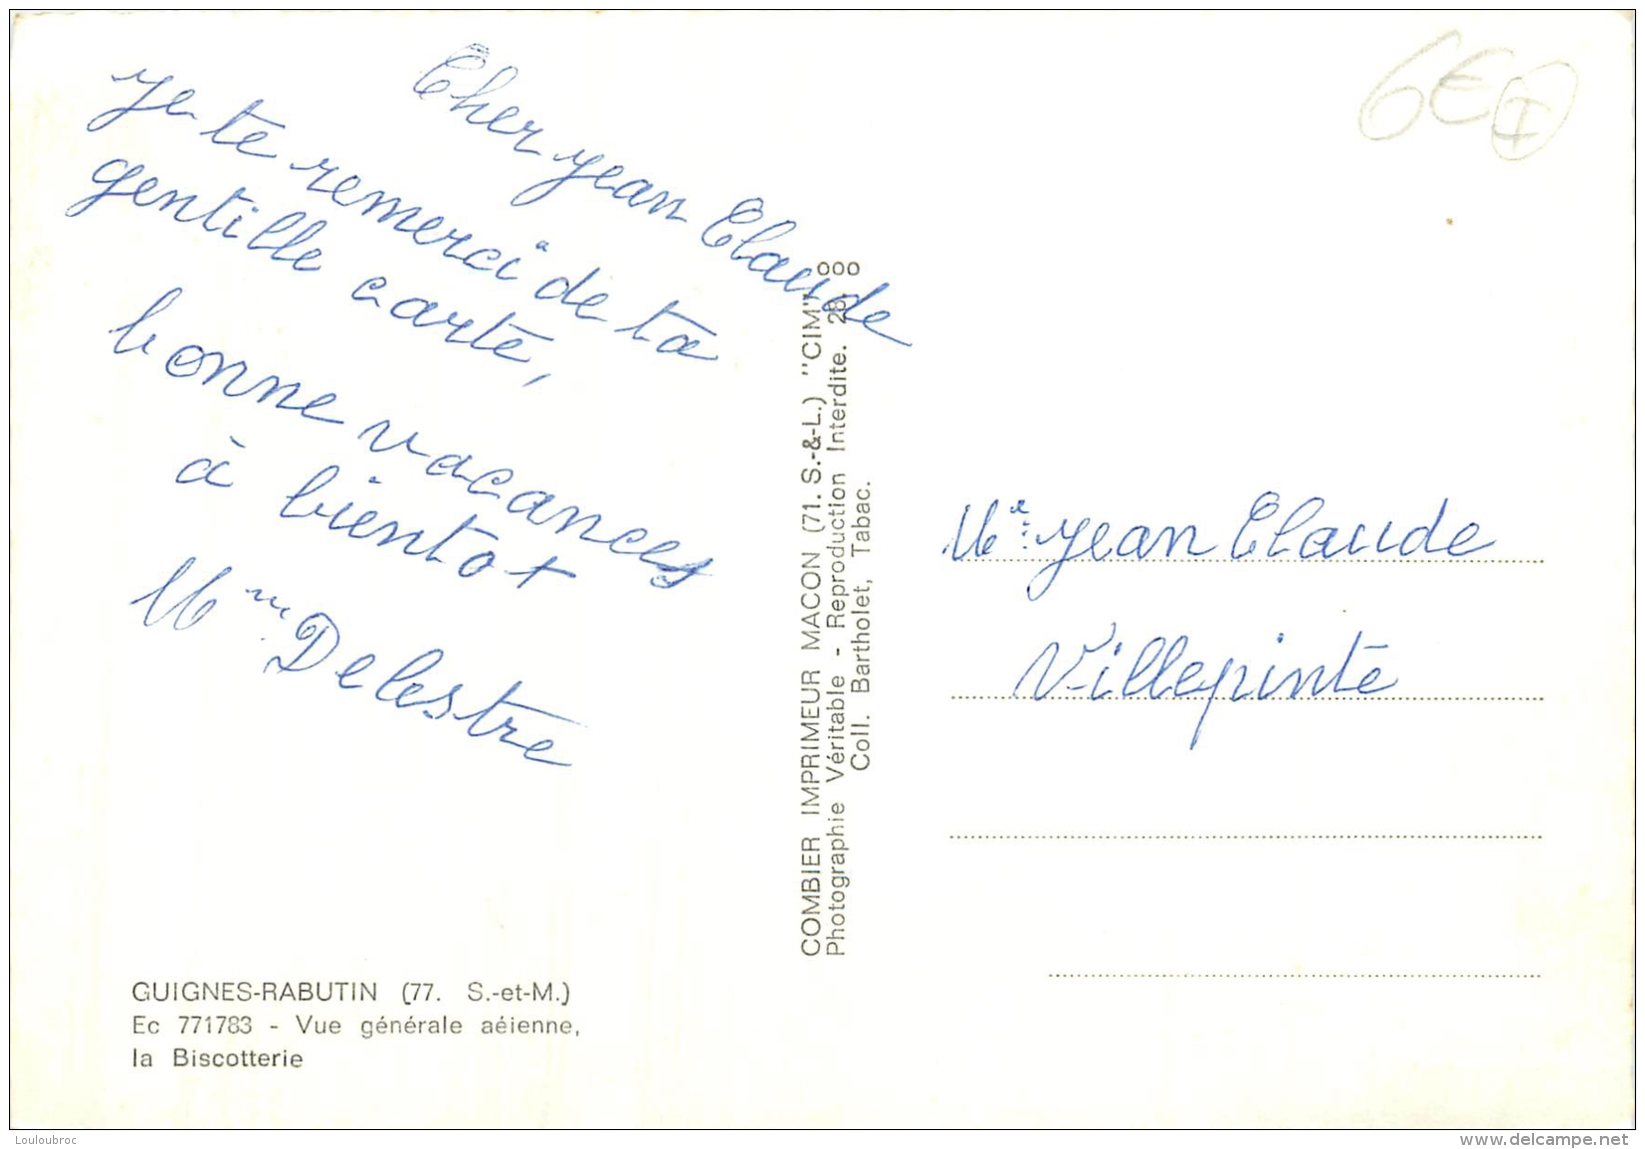 Cher Jean Claude
Je te remerci de ta
gentille carte,
bonne vacances
à bientot
Mme Delestre
GUIGNES-RABUTIN (77. S.-et-M.)
Ec 771783 - Vue générale aéienne,
la Biscotterie
COMBIER IMPRIMEUR MACON (71. S.-&-L.) "CIM"
Photographie Véritable - Reproduction Interdite. 28 000
Coll. Bartholet, Tabac.
6E I
Mr: Jean Claude
Villepinte
Louloubroc
www.delcampe.net